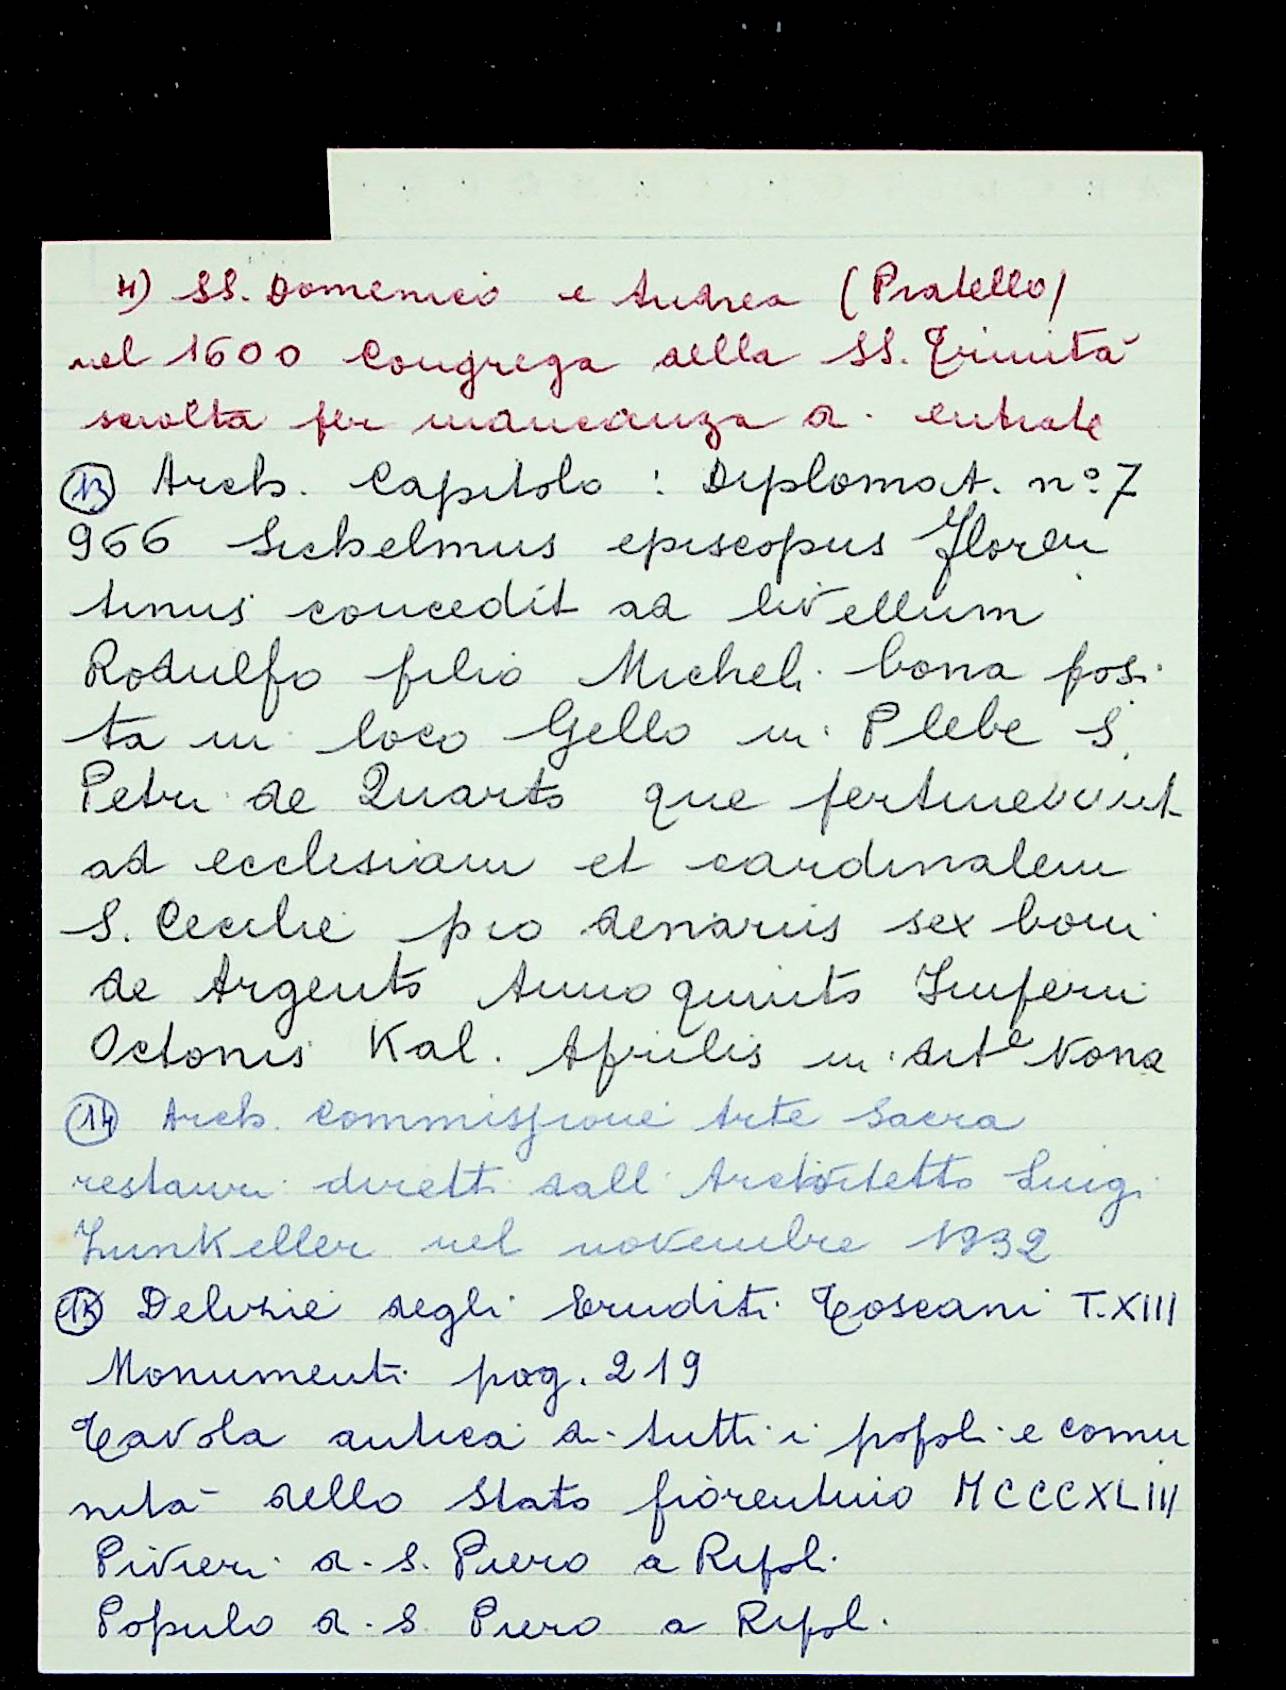 4) SS. Domenico e Andrea (Pratello)
nel 1600 Congrega della SS. Trinità
sciolta per mancanza di entrate
13 Arch. Capitolo : Diplomat. n° 7
966 Sichelmus episcopus Floren
tinus concedit ad livellum
Rodulfo filio Micheli bona posi
ta in loco Gello in Plebe S.
Petri de Quarto que pertinevunt
ad ecclesiam et cardinalem
S. Cecilie pro denariis sex boni
de Argento Anno quinto Imperii
Octonis Kal. Aprilis in dite Nona
14 Arch. Commissione Arte Sacra
restauri diretti dall' Architetto Luigi
Zunkeller nel novembre 1932
15 Delizie degli Eruditi Toscani T. XIII
Monumenti pag. 219
Tavola antica di tutti i popoli e comu
nità dello Stato fiorentino MCCCXLIII
Pivieri di S. Piero a Ripoli
Populo di S. Piero a Ripoli